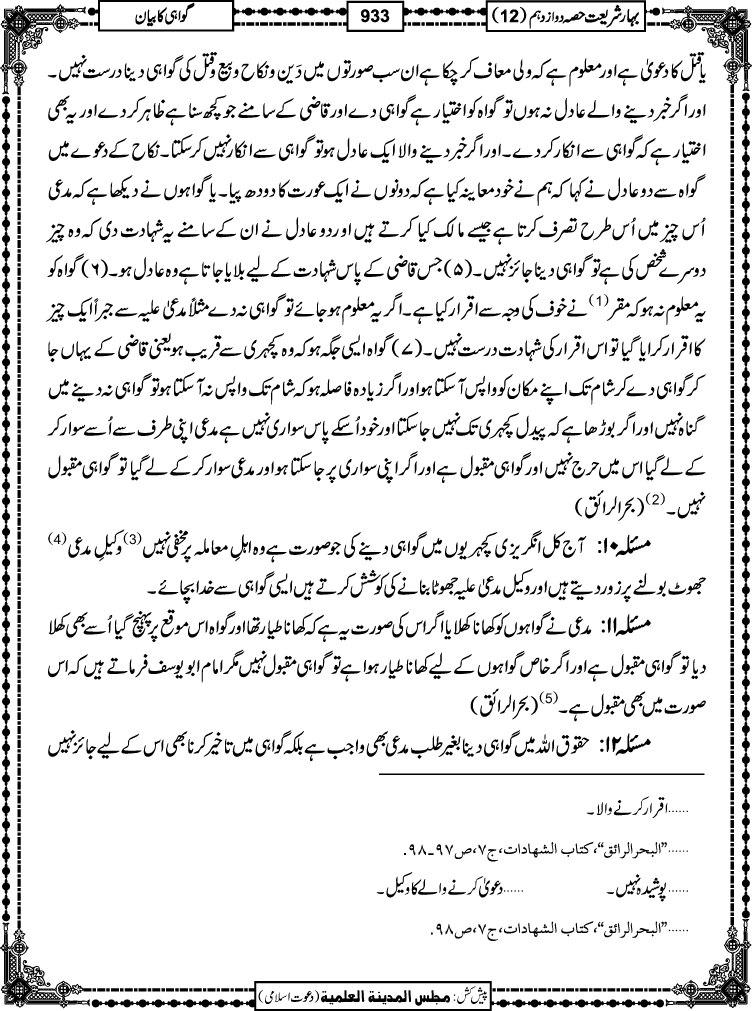 بہارشریعت حصہ دوازدہم (12)
933
گواہی کا بیان
یا قتل کا دعویٰ ہے اور معلوم ہے کہ ولی معاف کر چکا ہے ان سب صورتوں میں دَین و نکاح و بیع و قتل کی گواہی دینا درست نہیں۔
اور اگر خبر دینے والے عادل نہ ہوں تو گواہ کو اختیار ہے گواہی دے اور قاضی کے سامنے جو کچھ سنا ہے ظاہر کر دے اور یہ بھی
اختیار ہے کہ گواہی سے انکار کر دے۔ اور اگر خبر دینے والا ایک عادل ہو تو گواہی سے انکار نہیں کر سکتا۔ نکاح کے دعوے میں
گواہ سے دو عادل نے کہا کہ ہم نے خود معاینہ کیا ہے کہ دونوں نے ایک عورت کا دودھ پیا۔ یا گواہوں نے دیکھا ہے کہ مدعی
اُس چیز میں اُس طرح تصرف کرتا ہے جیسے مالک کیا کرتے ہیں اور دو عادل نے ان کے سامنے یہ شہادت دی کہ وہ چیز
دوسرے شخص کی ہے تو گواہی دینا جائز نہیں۔ (۵) جس قاضی کے پاس شہادت کے لیے بلایا جاتا ہے وہ عادل ہو۔ (۶) گواہ کو
یہ معلوم نہ ہو کہ مقر (1) نے خوف کی وجہ سے اقرار کیا ہے۔ اگر یہ معلوم ہو جائے تو گواہی نہ دے مثلاً مدعیٰ علیہ سے جبراً ایک چیز
کا اقرار کرایا گیا تو اس اقرار کی شہادت درست نہیں۔ (۷) گواہ ایسی جگہ ہو کہ وہ کچہری سے قریب ہو یعنی قاضی کے یہاں جا
کر گواہی دے کر شام تک اپنے مکان کو واپس آ سکتا ہو اور اگر زیادہ فاصلہ ہو کہ شام تک واپس نہ آ سکتا ہو تو گواہی نہ دینے میں
گناہ نہیں اور اگر بوڑھا ہے کہ پیدل کچہری تک نہیں جا سکتا اور خود اُسکے پاس سواری نہیں ہے مدعی اپنی طرف سے اُسے سوار کر
کے لے گیا اس میں حرج نہیں اور گواہی مقبول ہے اور اگر اپنی سواری پر جا سکتا ہو اور مدعی سوار کر کے لے گیا تو گواہی مقبول
نہیں۔ (2) (بحرالرائق)
مسئلہ ۱۰: آج کل انگریزی کچہریوں میں گواہی دینے کی جو صورت ہے وہ اہلِ معاملہ پر مخفی نہیں (3) وکیلِ مدعی (4)
جھوٹ بولنے پر زور دیتے ہیں اور وکیل مدعیٰ علیہ جھوٹا بنانے کی کوشش کرتے ہیں ایسی گواہی سے خدا بچائے۔
مسئلہ ۱۱: مدعی نے گواہوں کو کھانا کھلایا اگر اس کی صورت یہ ہے کہ کھانا طیار تھا اور گواہ اس موقع پر پہنچ گیا اُسے بھی کھلا
دیا تو گواہی مقبول ہے اور اگر خاص گواہوں کے لیے کھانا طیار ہوا ہے تو گواہی مقبول نہیں مگر امام ابو یوسف فرماتے ہیں کہ اس
صورت میں بھی مقبول ہے۔ (5) (بحرالرائق)
مسئلہ ۱۲: حقوق اللہ میں گواہی دینا بغیر طلب مدعی بھی واجب ہے بلکہ گواہی میں تاخیر کرنا بھی اس کے لیے جائز نہیں
......اقرار کرنے والا۔
......”البحرالرائق“، کتاب الشھادات، ج۷، ص۹۷-۹۸.
......پوشیدہ نہیں۔ ......دعویٰ کرنے والے کا وکیل۔
......”البحرالرائق“، کتاب الشھادات، ج۷، ص۹۸.
پیش کش: مجلس المدینۃ العلمیۃ (دعوت اسلامی)